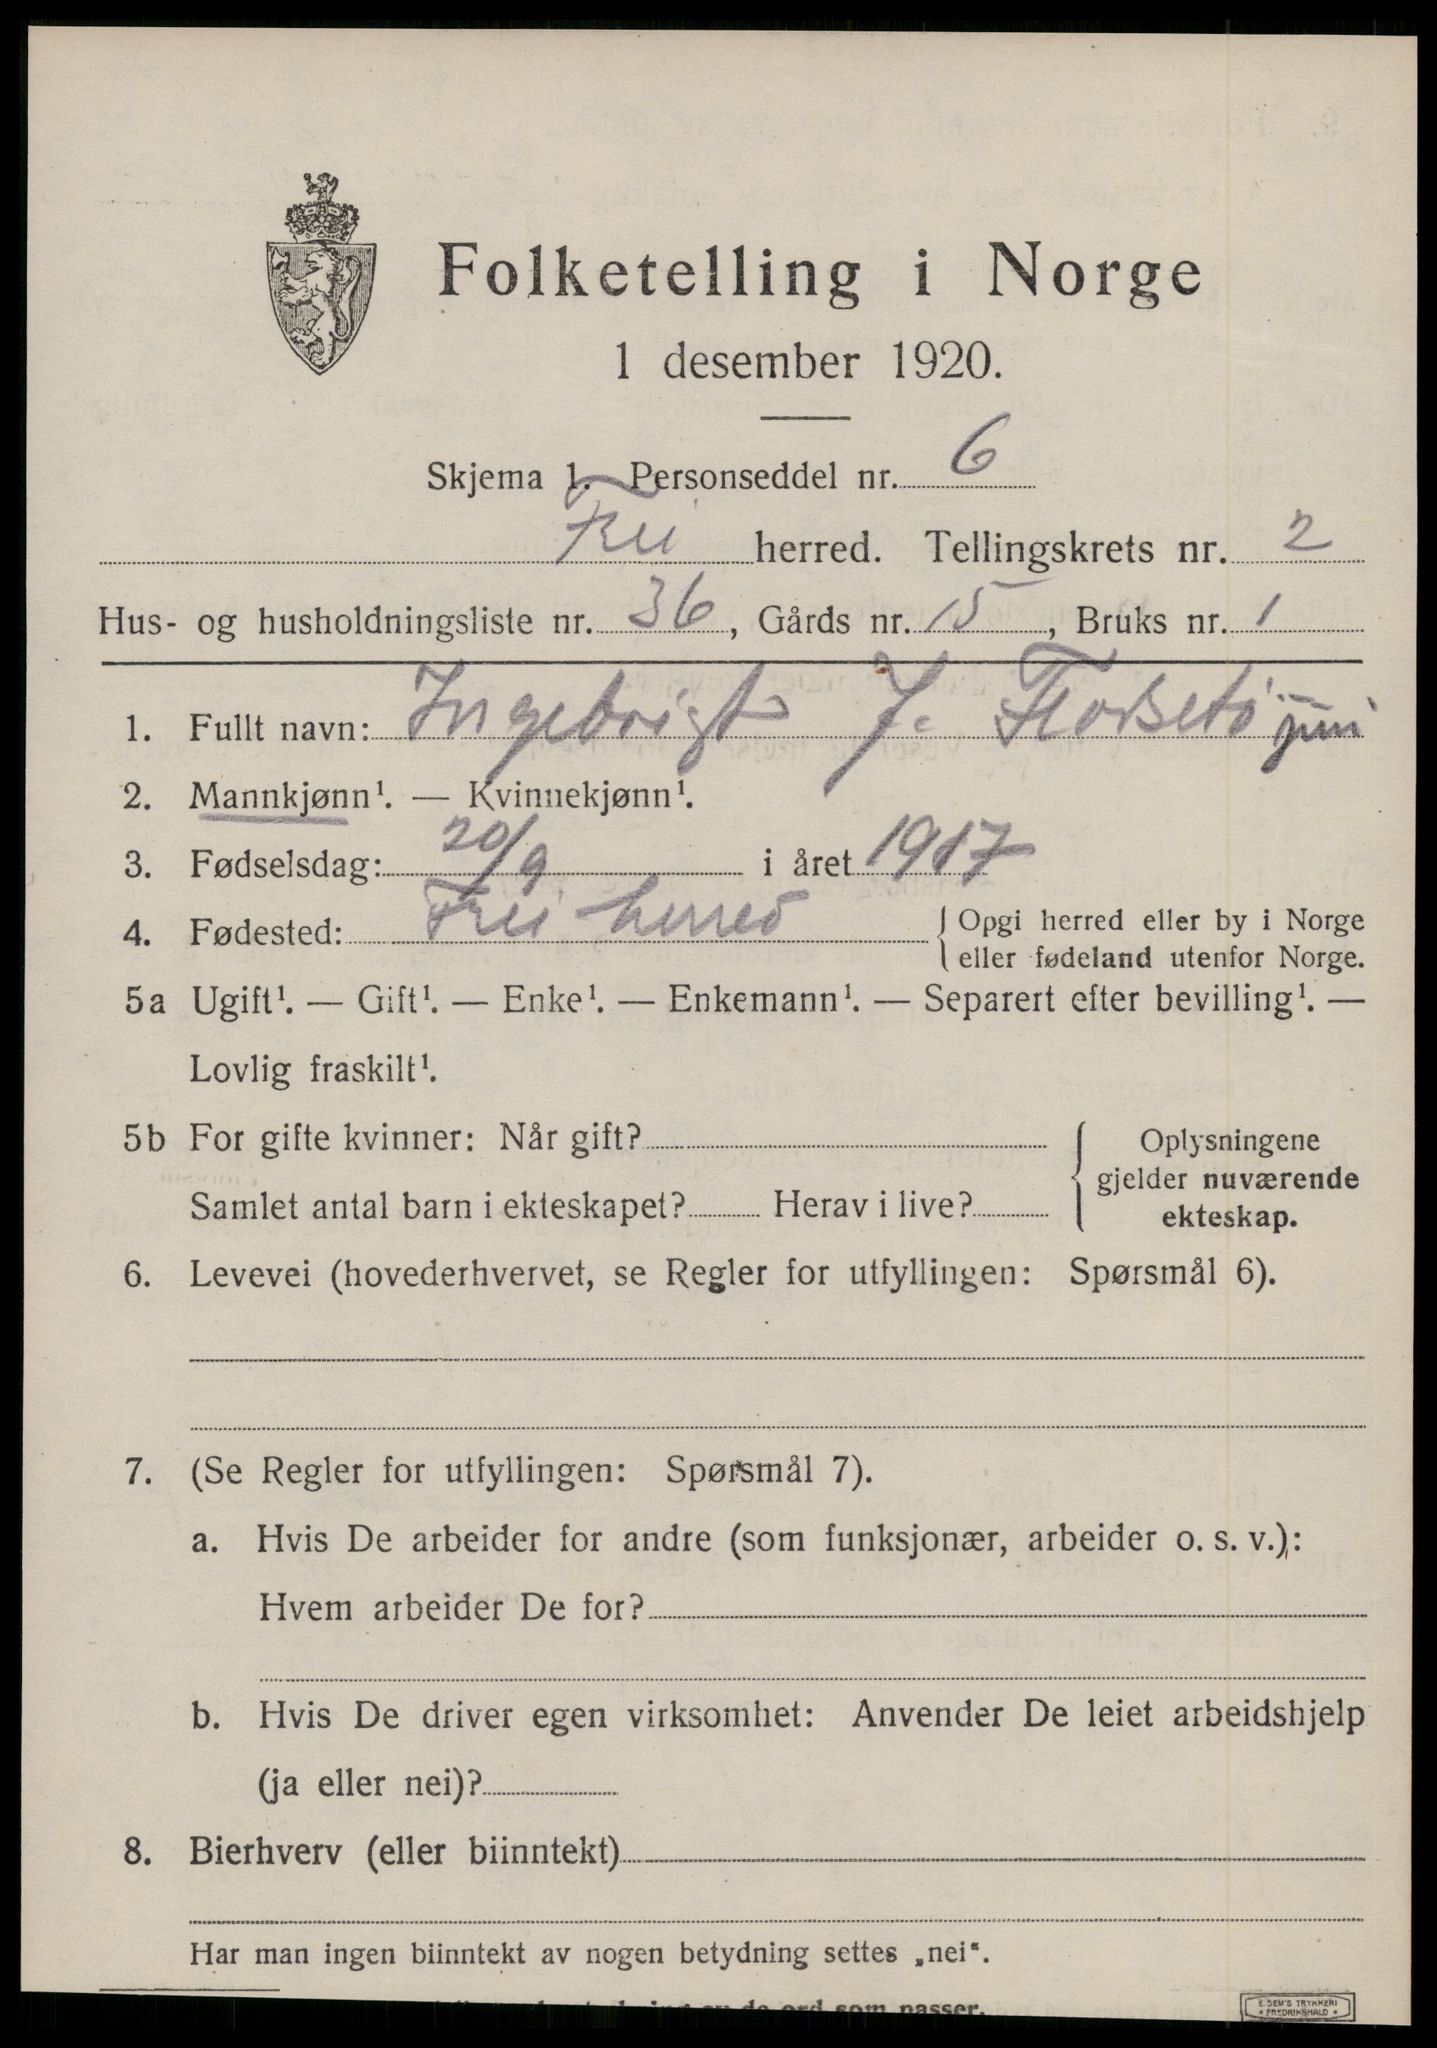 Folketelling i Norge
1 desember 1920.
Skjema 1. Personseddel nr. 6
Frei herred. Tellingskrets nr. 2
Hus- og husholdningsliste nr. 36, Gårds nr. 15, Bruks nr. 1
1. Fullt navn: Ingebrigt J. Flatsetø juni
2. Mannkjønn¹. — Kvinnekjønn¹.
3. Fødselsdag: 20/9 i året 1917
4. Fødested: Frei herred { Opgi herred eller by i Norge
eller fødeland utenfor Norge.
5a Ugift¹. — Gift¹. — Enke¹. — Enkemann¹. — Separert efter bevilling¹. —
Lovlig fraskilt¹.
5b For gifte kvinner: Når gift?
Samlet antal barn i ekteskapet? Herav i live?
Oplysningene
gjelder nuværende
ekteskap.
6. Levevei (hovederhvervet, se Regler for utfyllingen: Spørsmål 6).
7. (Se Regler for utfyllingen: Spørsmål 7).
a. Hvis De arbeider for andre (som funksjonær, arbeider o. s. v.):
Hvem arbeider De for?
b. Hvis De driver egen virksomhet: Anvender De leiet arbeidshjelp
(ja eller nei)?
8. Bierhverv (eller biinntekt)
Har man ingen biinntekt av nogen betydning settes „nei“.
av de ord som passer.
E. SEM'S TRYKKERI
FREDRIKSHALD